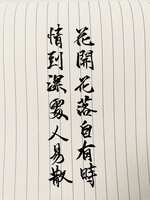 花開花落自有時
情到深處人易散